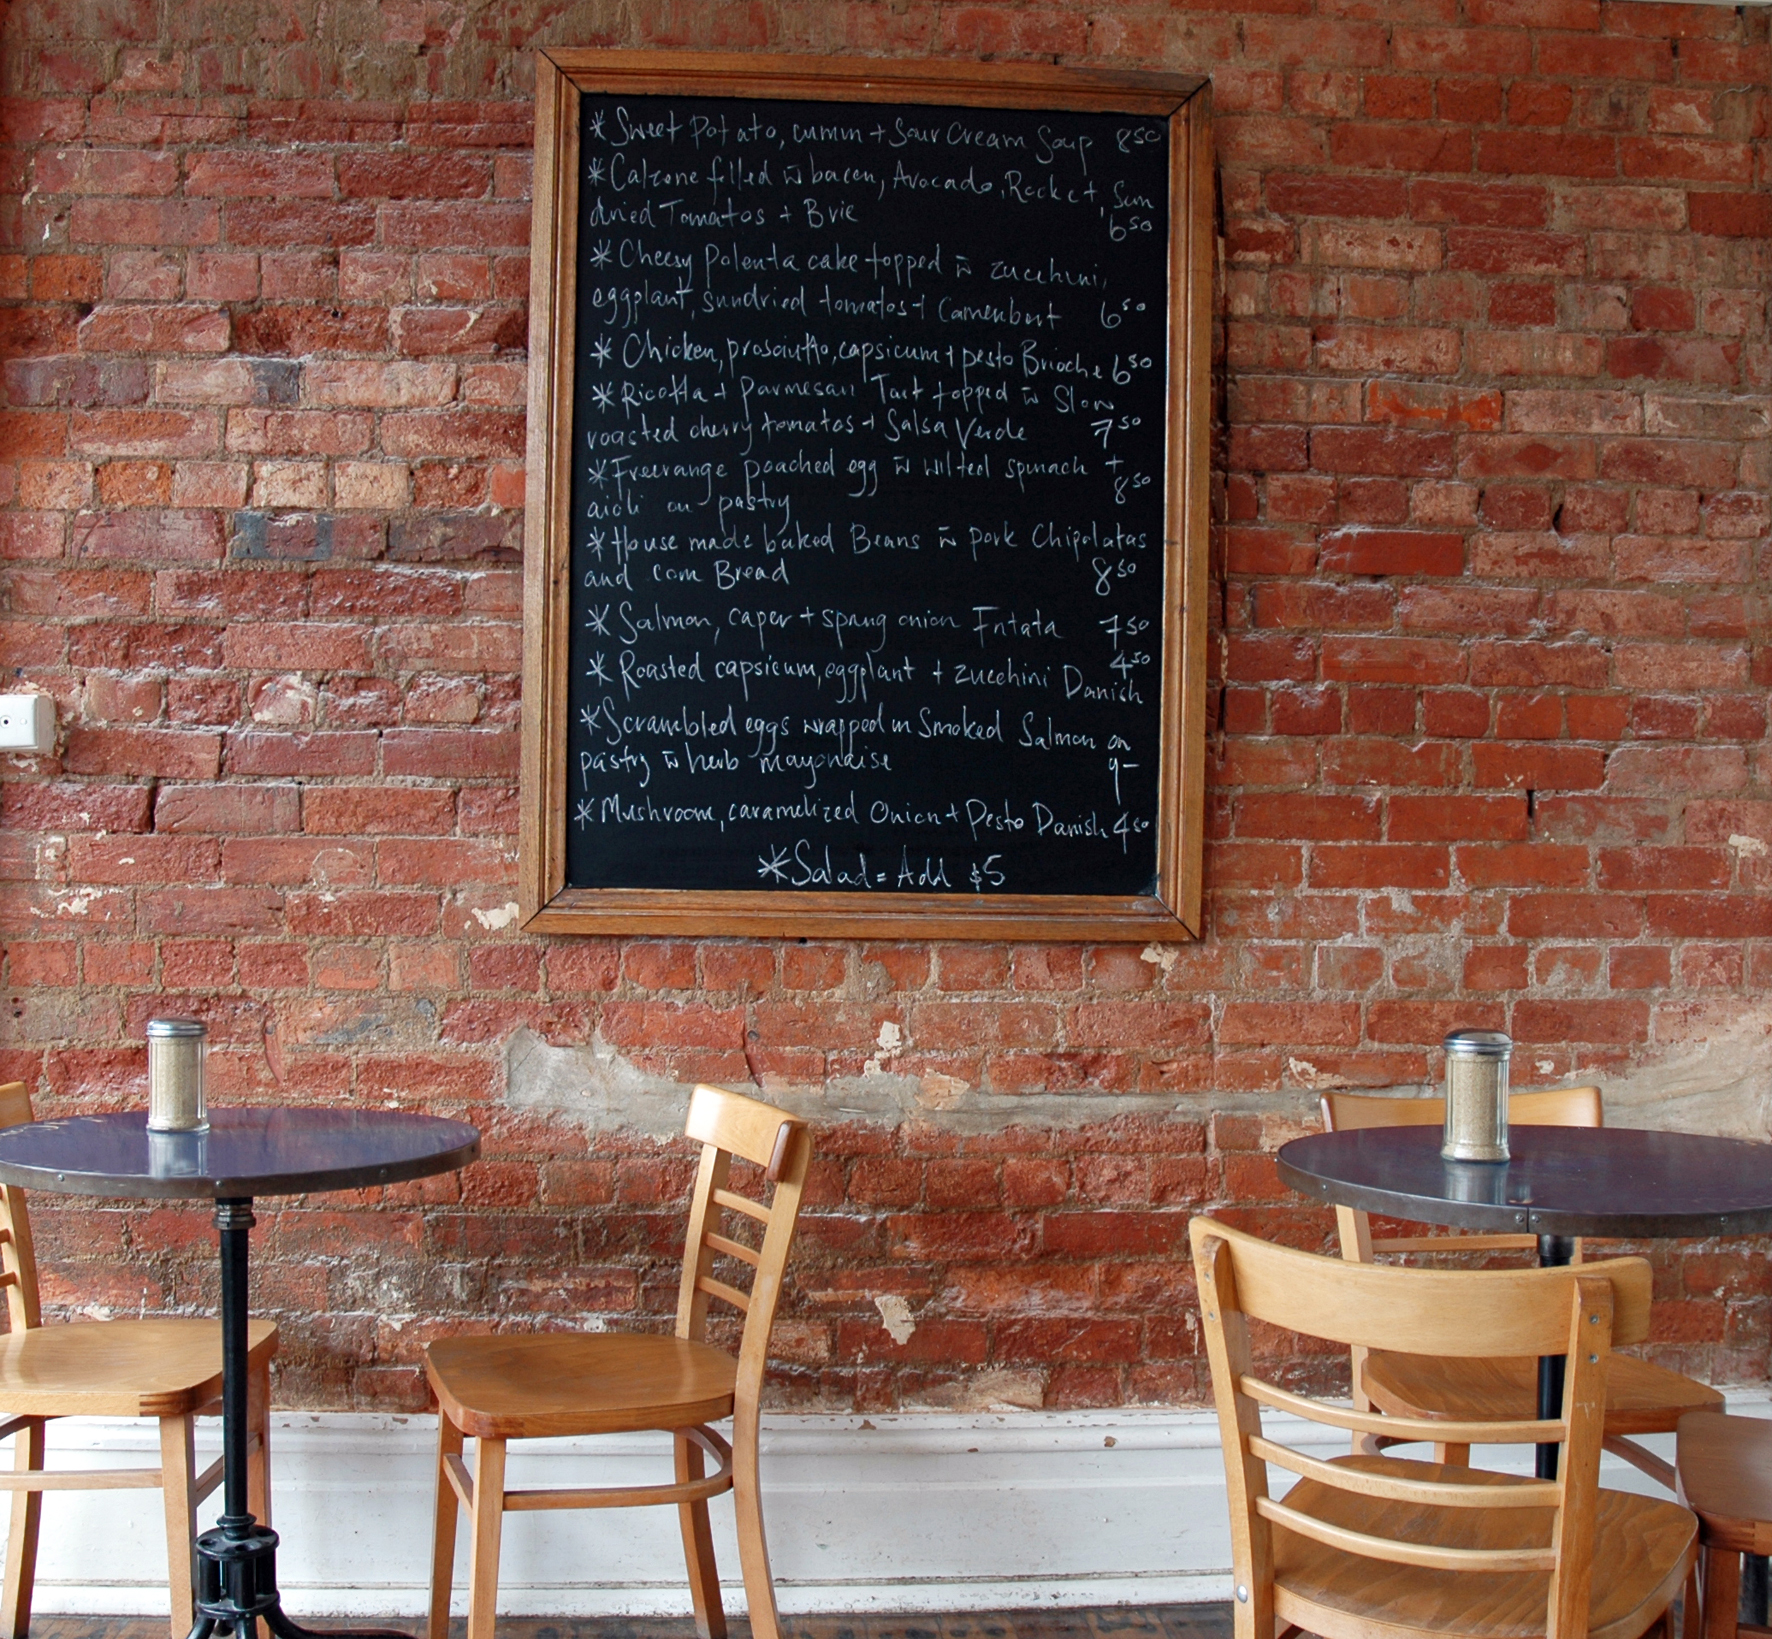 * Sweet Potato, cumin + Sour Cream Soup 8 50
* Calzone filled w̄ bacon, Avocado, Rocket, Sun
dried Tomatos + Brie 6 50
* Cheesy Polenta cake topped w̄ zucchini,
eggplant, sundried tomatos + Camenbert 6 50
* Chicken, prosciutto, capsicum + pesto Brioche 6 50
* Ricotta + Parmesan Tart topped w̄ Slow
roasted cherry tomatos + Salsa Verde 7 50
* Freerange poached egg w̄ wilted spinach +
aioli on pastry 8 50
* House made baked Beans w̄ pork Chipolatas
and corn Bread 8 50
* Salmon, caper + spring onion Fritata 7 50
* Roasted capsicum, eggplant + zucchini Danish 4 50
* Scrambled eggs wrapped in Smoked Salmon on
pastry w̄ herb mayonaise 9-
* Mushroom, caramelized Onion + Pesto Danish 4 50
* Salad = Add $5